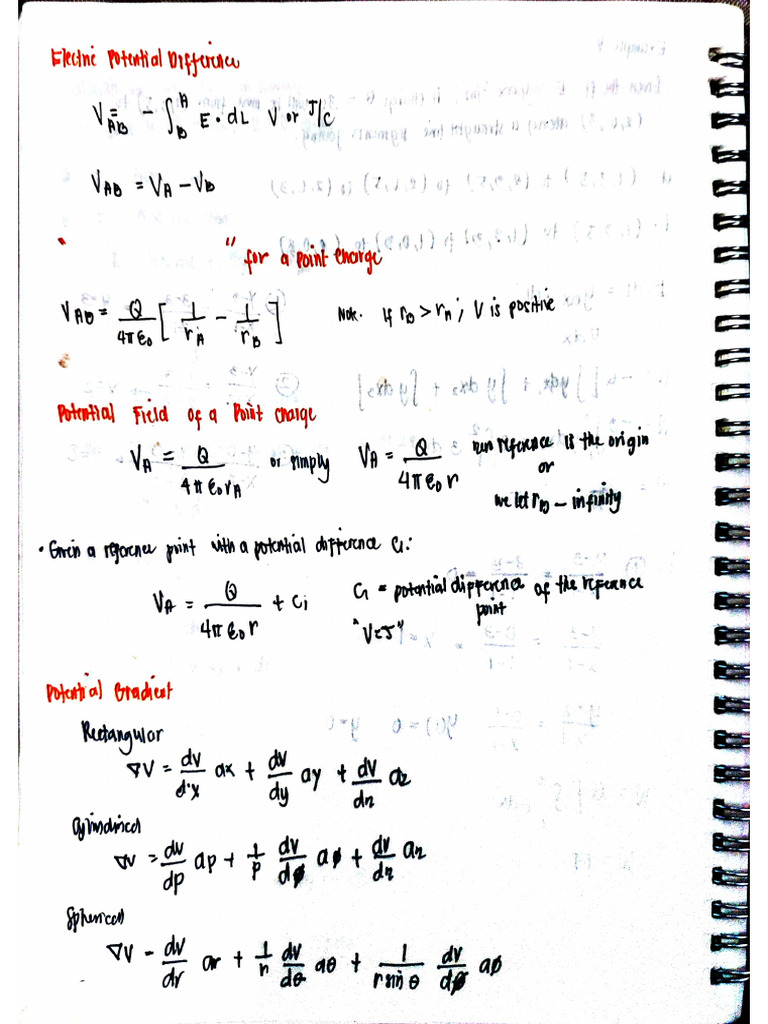 Electric Potential Difference
V_AB = - ∫_B^A E • dL V or J/C
V_AB = V_A - V_B
" " for a point charge
V_AB = Q/4πε₀ [ 1/r_A - 1/r_B ] Note: If r_B > r_A; V is positive
Potential Field of a Point Charge
V_A = Q/4πε₀r_A or simply V_A = Q/4πε₀r reference is the origin
or
we let r_B - infinity
• Given a reference point with a potential difference C₁:
V_A = Q/4πε₀r + C₁ C₁ = potential difference of the reference
point
"V=J"
Potential Gradient
Rectangular
∇V = dv/dx ax + dv/dy ay + dv/dz az
Cylindrical
∇V = dv/dρ aρ + 1/ρ dv/dø aø + dv/dz az
Spherical
∇V - dv/dr ar + 1/r dv/dθ aθ + 1/r sin θ dv/dø aø